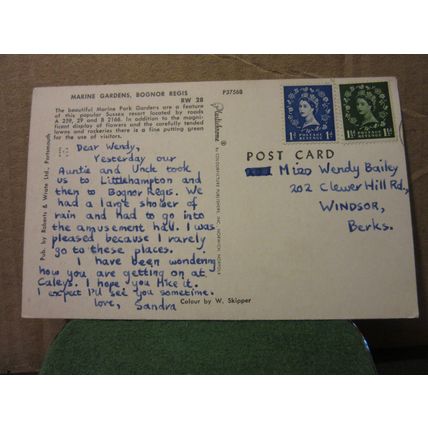 MARINE GARDENS, BOGNOR REGIS
RW 28
P37568
The beautiful Marine Park Gardens are a feature
of this popular Sussex resort located by roads
A 259, 29 and B 2166. In addition to the magni-
ficent display of flowers and the carefully tended
lawns and rockeries there is a fine putting green
for the use of visitors.
Dear Wendy,
Yesterday our
Auntie and Uncle took
us to Littlehampton and
then to Bognor Regis. We
had a large shower of
rain and had to go into
the amusement hall. I was
pleased because I rarely
go to these places.
I have been wondering
how you are getting on at
Caleys. I hope you like it.
I expect I'll see you sometime.
love, Sandra
Colour by W. Skipper
Pub. by Roberts & Wrate Ltd., Portsmouth
Plastichrome ®
by COLOURPICTURE PUBLISHERS, INC.
POST CARD
Miss Wendy Bailey
202 Clewer Hill Rd.,
WINDSOR,
Berks.
1d POSTAGE REVENUE 1d
1½d POSTAGE REVENUE 1½d